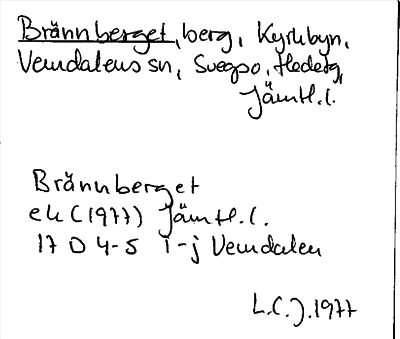 Brännberget, berg, Kyrkbyn,
Vemdalens sn, Svegpo, Hedetg,
Jämtl.l.
Brännberget
ek (1977) Jämtl.l.
17 D 4-5 i-j Vemdalen
L.C.J. 1977